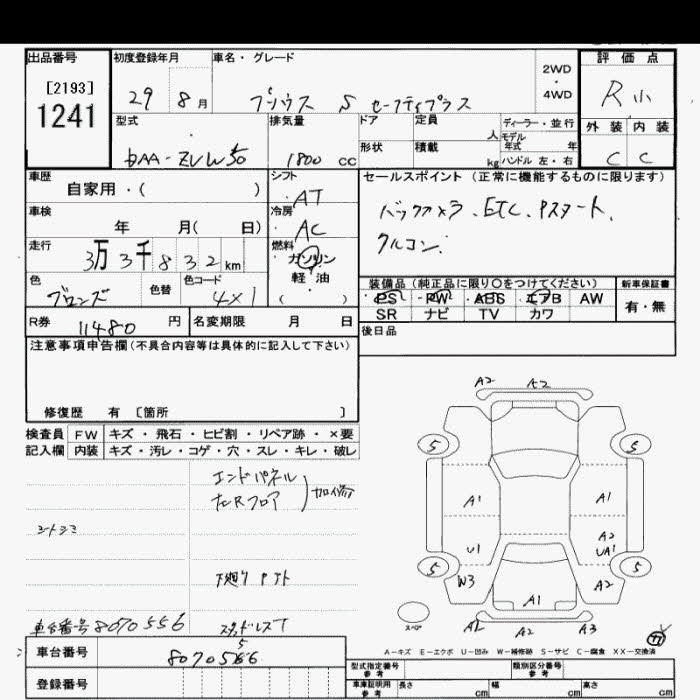 出品番号
[2193]
1241
初度登録年月
29 8月
車名・グレード
プリウス S セーフティプラス
2WD
・
4WD
評価点
R小
外装 内装
C C
型式
DAA-ZVW50
排気量
1800 CC
ドア
形状
定員
人
積載
kg
ディーラー・並行
モデル
年式 年
ハンドル 左・右
車歴
自家用・( )
シフト
AT
車検
年 月( 日)
冷房
AC
走行
3万3千832km
燃料
ガソリン
軽・油
( )
色
ブロンズ
色替
色コード
4X1
R券
11480円
名変期限 月 日
セールスポイント(正常に機能するものに限ります)
バックカメラ、ETC、Pスタート、
クルコン
装備品(純正品に限り○をつけてください)
PS ・ PW ・ ABS ・ エアB AW
SR ナビ TV カワ
新車保証書
有・無
後日品
注意事項申告欄(不具合内容等は具体的に記入して下さい)
修復歴 有 〔箇所 〕
検査員 FW キズ・飛石・ヒビ割・リペア跡・×要
記入欄 内装 キズ・汚レ・コゲ・穴・スレ・キレ・破レ
エンドパネル
左Rフロア
加修
シートシミ
下廻り
車台番号 8070556
スタッドレスT
5
車台番号
8070556
登録番号
A2 A2
5 5
A1 A1
A2
U1 UA1
5 5
W3 A2
A1
スペア
A1 A2 A3
77
A-キズ E-エクボ U-凹み W-補修跡 S-サビ C-腐食 XX-交換済
型式指定番号
参考
類別区分番号
参考
車庫証明用
参考
長さ cm 幅 cm 高さ cm